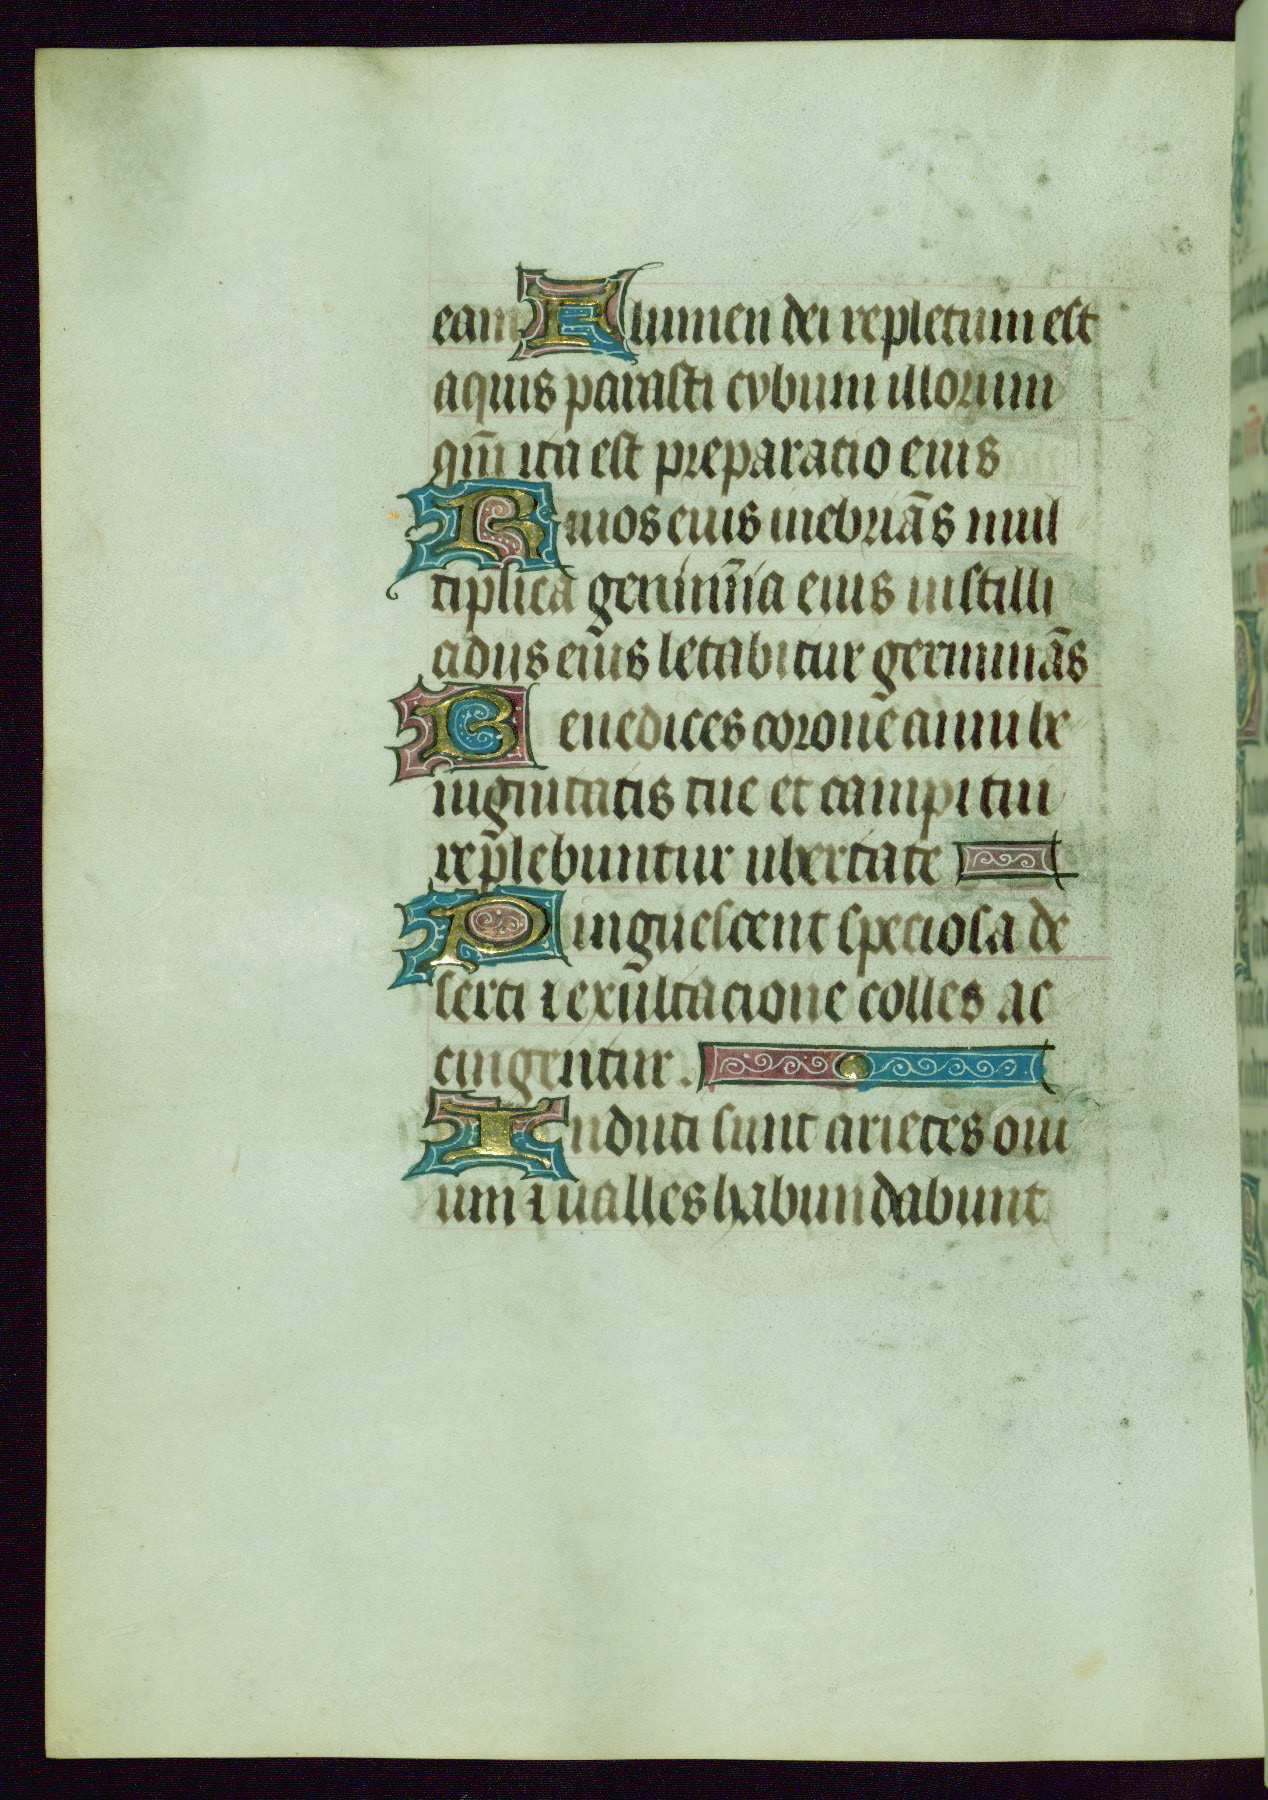 eam Flumen dei repletum est
aquis parasti cybum illorum
qm̄ ita est preparatio eius
Riuos eius inebriās mul
tiplica genim̄ia eius in stilli
cidiis eius letabitur germinās
Benedices corone anni be
nignitatis tue et campi tui
replebuntur ubertate
Pinguescent speciosa de
serti ⁊ exultacione colles ac
cingentur.
Induti sunt arietes oui
um ⁊ ualles habundabunt